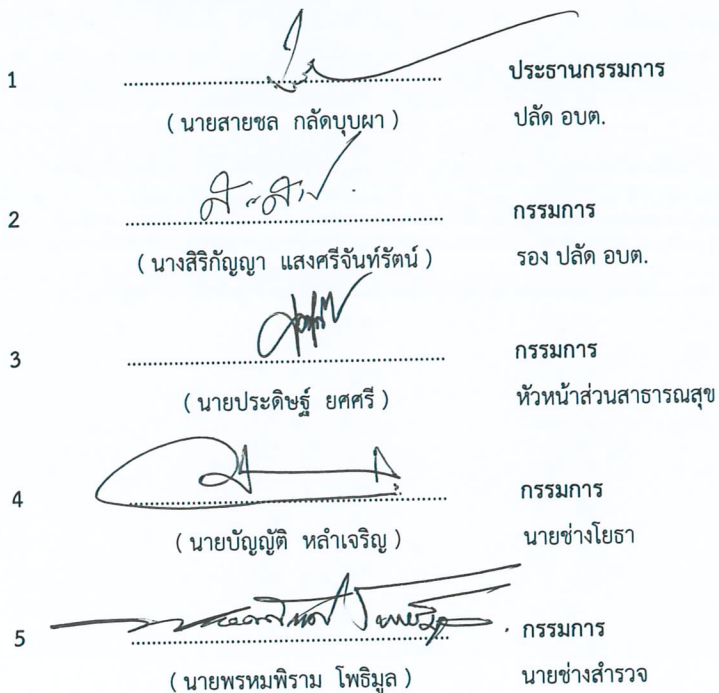 1 ........................................ ประธานกรรมการ
( นายสายชล กลัดบุบผา ) ปลัด อบต.
2 ........................................ กรรมการ
( นางสิริกัญญา แสงศรีจันทร์รัตน์ ) รอง ปลัด อบต.
3 ........................................ กรรมการ
( นายประดิษฐ์ ยศศรี ) หัวหน้าส่วนสาธารณสุข
4 ........................................ กรรมการ
( นายบัญญัติ หลำเจริญ ) นายช่างโยธา
5 ........................................ กรรมการ
( นายพรหมพิราม โพธิมูล ) นายช่างสำรวจ